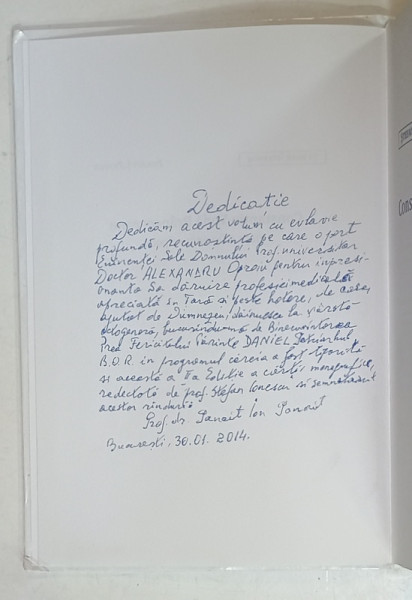 Dedicație
Dedicăm acest volum cu evlavie
profundă, recunoștință pe care o port
Eminenței Sale Domnului Prof. universitar
Doctor ALEXANDRU Oproiu pentru impresi-
onanta Sa dăruire profesiei medicale
apreciată în Țară și peste hotare, de aceea,
ajutat de Dumnezeu, dăinuesc la vârstă
octogenară, bucurându-mă de Binecuvântarea
Prea Fericitului Părinte DANIEL Patriarhul
B.O.R. în programul căreia a fost tipărită
și aceastã a IIa Ediție a cărții monografice,
redactată de prof. Ștefan Ionescu și semnatarul
acestor rânduri
Prof. dr. Panait Ion Panait
București, 30.01.2014.
Cons